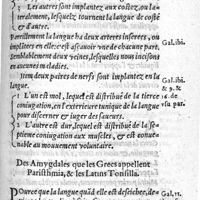 2 Les autres sont implantez aux costez, ou la-
teralement, lesquelz tournent la langue de costé
& d'autre.
pareillement la langue ha deux arteres inserees, ou
implãtees en elle: est asçavoir vne de chacune part.
semblablement deux veines, lesquelles nous incisons
es auemens en ladies.
Gal. ibi.
Item deux paires de nerfs sont implantez en la
langue.
1 L'vn est mol, lequel est distribué de la tierce
coniugation, en l'exterieure tunique de la langue
pour discerner & iuger des saueurs.
Gal. ibi.
& 9. &
16. de
vsu par.
2 L'autre est dur, lequel est distribué de la se-
ptieme coniugation aux muscles, & est conue-
nable au mouuement voluntaire.
Des Amygdales que les Grecs appellent
Paristhmia, & les Latins Tonsilla.
Pource que la langue quãd elle est desseichee, de-
Gal. 11.